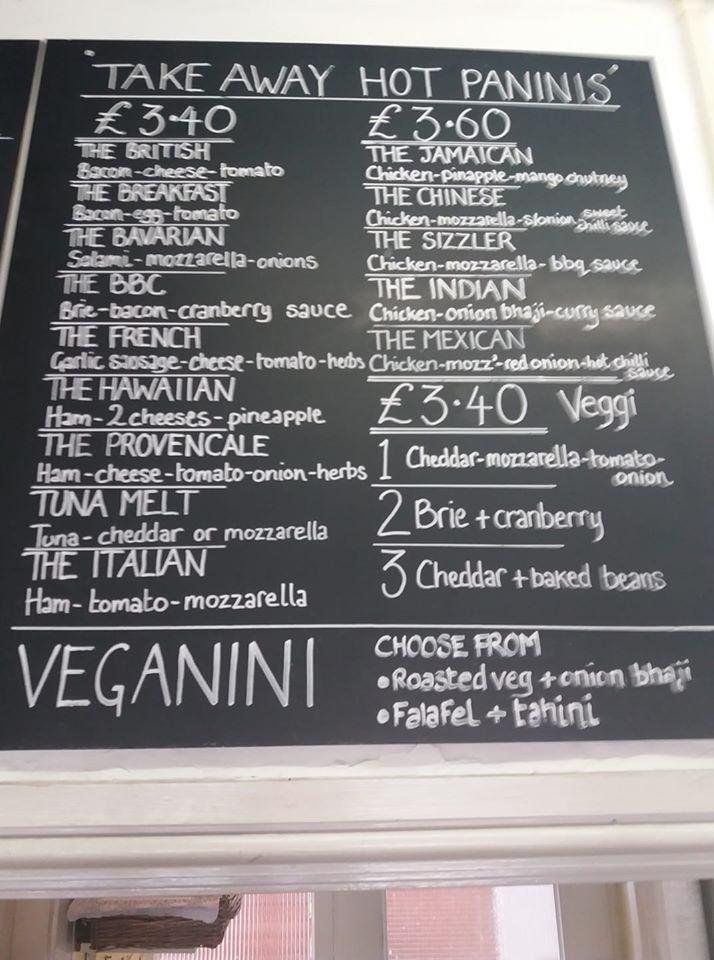 'TAKE AWAY HOT PANINIS'
£3.40
THE BRITISH
Bacon-cheese-tomato
THE BREAKFAST
Bacon-egg-tomato
THE BAVARIAN
Salami-mozzarella-onions
THE BBC
Brie-bacon-cranberry sauce
THE FRENCH
Garlic sausage-cheese-tomato-herbs
THE HAWAIIAN
Ham-2cheeses-pineapple
THE PROVENCALE
Ham-cheese-tomato-onion-herbs
TUNA MELT
Tuna-cheddar or mozzarella
THE ITALIAN
Ham-tomato-mozzarella
£3.60
THE JAMAICAN
Chicken-pinapple-mango chutney
THE CHINESE
Chicken-mozzarella-s/onion sweet
chilli sauce
THE SIZZLER
Chicken-mozzarella-bbq sauce
THE INDIAN
Chicken-onion bhaji-curry sauce
THE MEXICAN
Chicken-mozz'-red onion-hot chilli
sauce
£3.40 Veggi
1 Cheddar-mozzarella-tomato-
onion
2 Brie+cranberry
3 Cheddar+baked beans
VEGANINI
CHOOSE FROM
•Roasted veg+onion bhaji
•Falafel+tahini